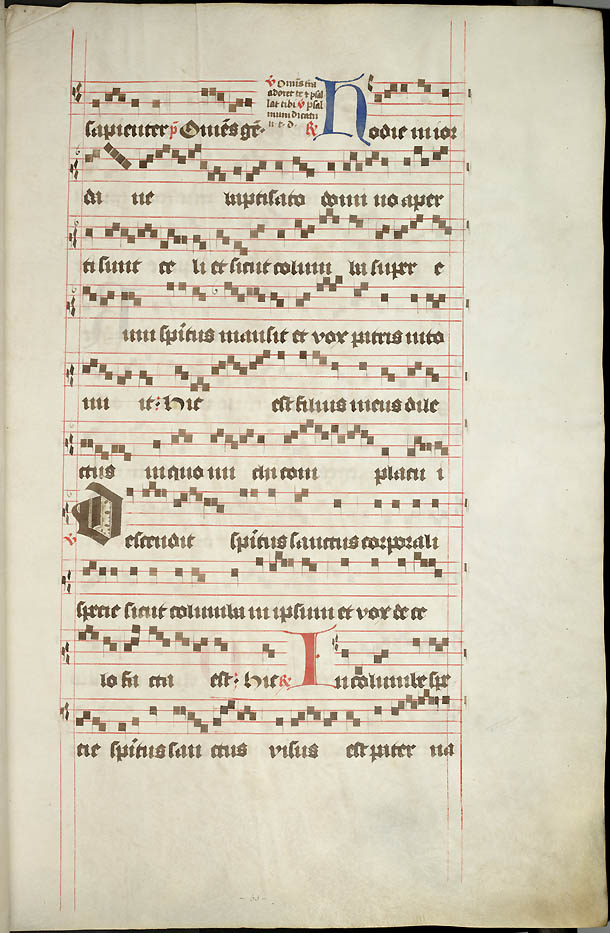 sapienter p̄ Om̄s gē.
℣ Om̄is t̄ra
adoret te ⁊ psal
lat tibi ℣ psal
mum dicat n
n. e. d.
℟ Hodie in ior
da ne baptisato domi no aper
ti sunt ce li et sicut colum ba super e
um sp̄itus mansit et vox patris into
nu it: Hic est filius meus dile
ctus in quo mi chi com placu i
℣ Descendit sp̄itus sanctus corporali
specie sicut columba in ipsum et vox de ce
lo fa cta est: Hic ℟ In columbe spe
cie sp̄itus san ctus visus est pater na